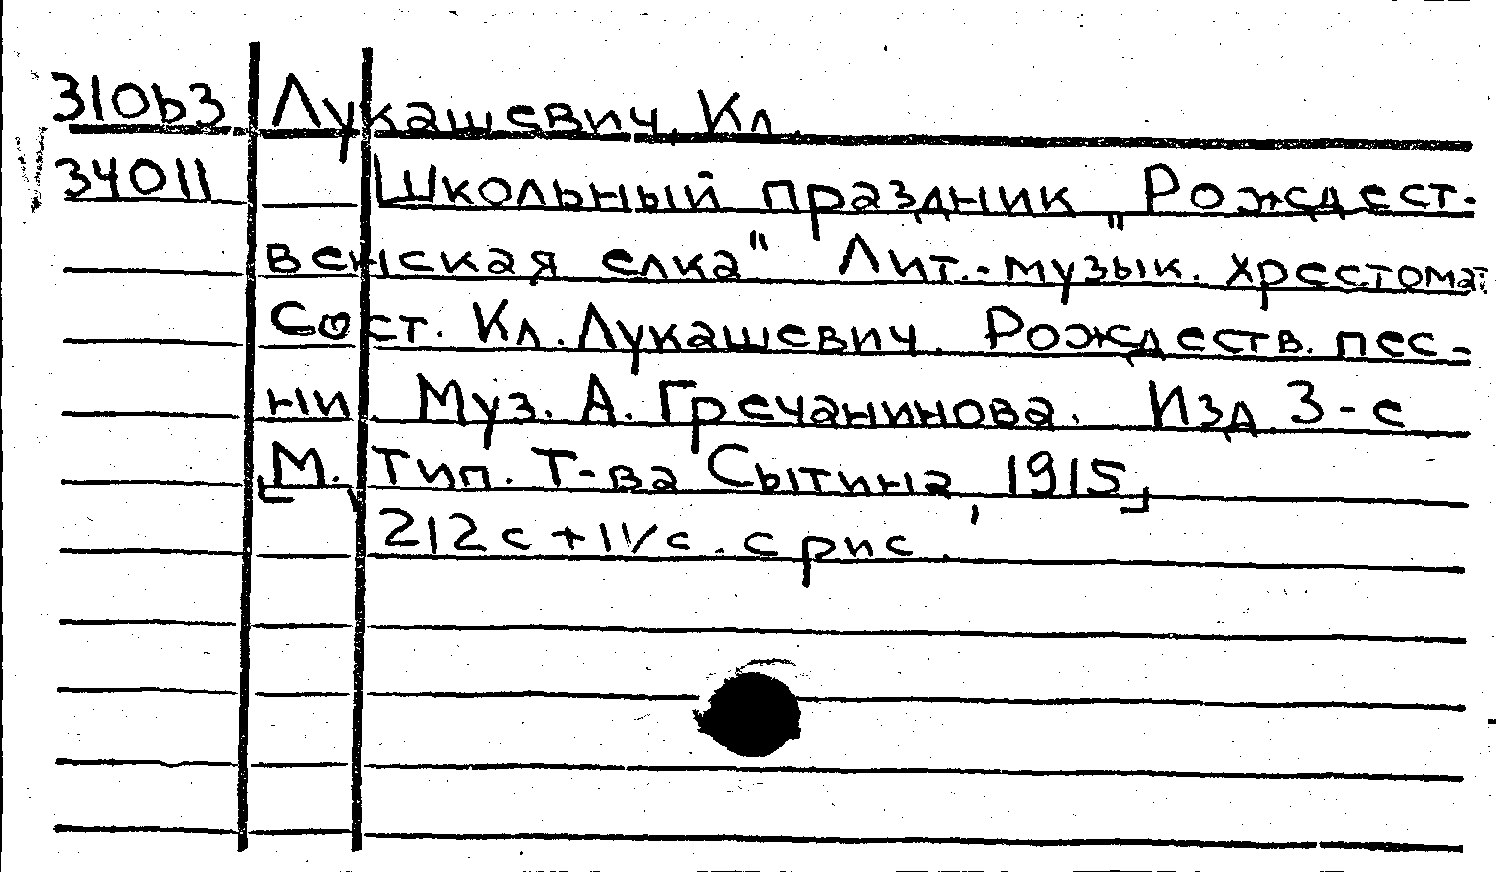 310ь3 Лукашевич, Кл.
34011 Школьный праздник „Рождест-
венская елка" Лит.-музык. хрестомат.
Сост. Кл. Лукашевич. Рождеств. пес-
ни. Муз. А. Гречанинова. Изд. 3-е
[М. Тип. Т-ва Сытина, 1915]
212 с + IV с. с рис.